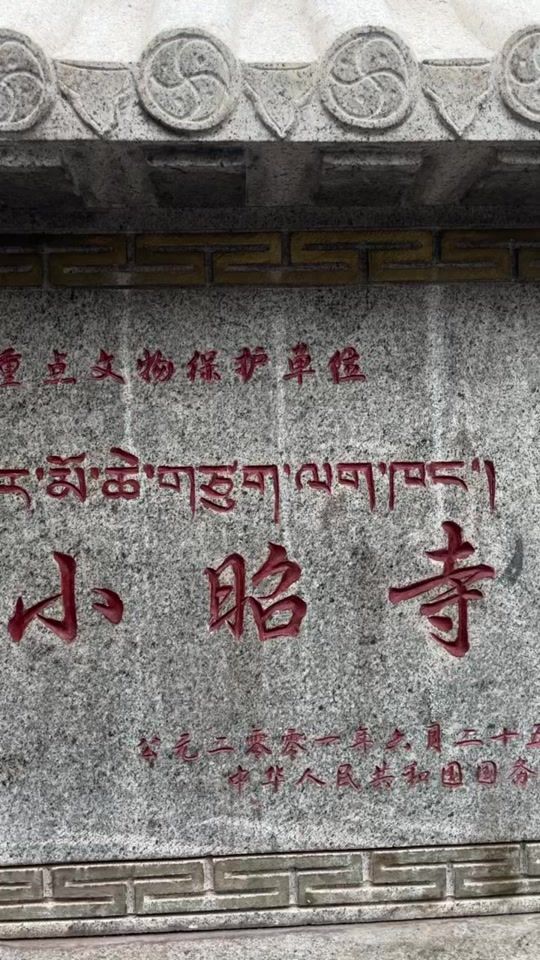 重点文物保护单位
ར་མོ་ཆེ་གཙུག་ལག་ཁང་།
小昭寺
公元二零零一年六月二十五
中华人民共和国国务